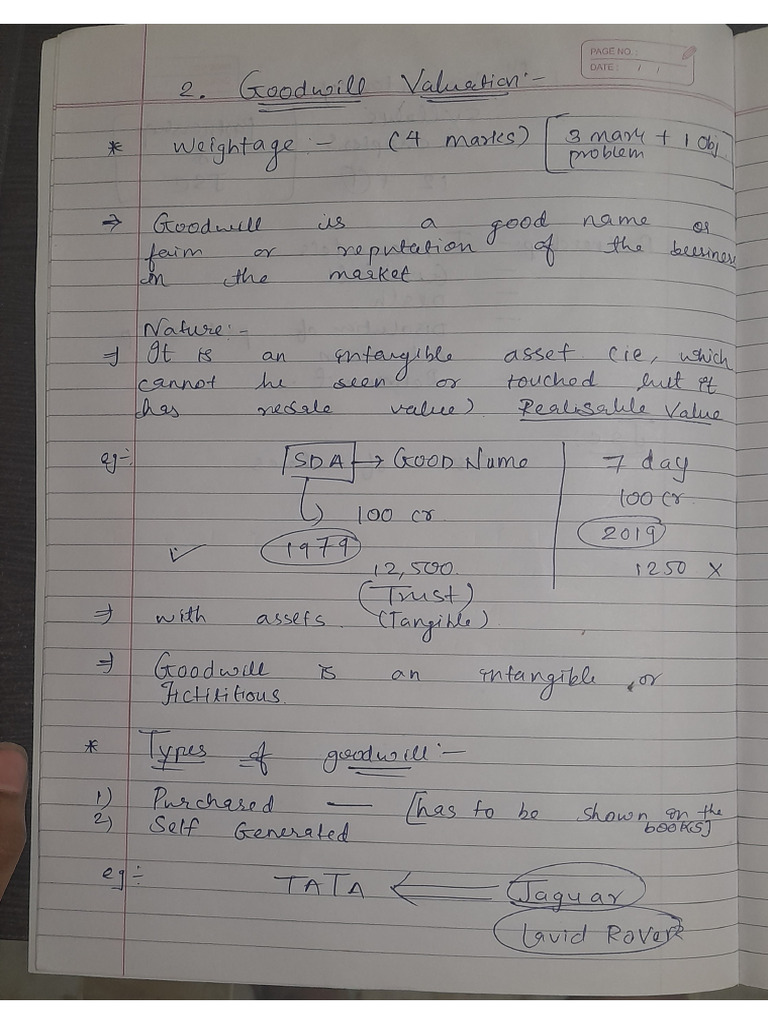 PAGE NO.:
DATE: / /
2. Goodwill Valuation:-
* Weightage:- (4 marks) [3 mark + 1 Obj
problem]
⇒ Goodwill is a good name or
faim or reputation of the beesiness
in the market
Nature:-
⇒ It is an intangible asset (ie, which
cannot be seen or touched but it
has resale value) Realisable Value
eg:- SDA → GOOD Name 7 day
100 cr 100 cr
✓ 1979 2019
12,500 1250 X
(Trust)
⇒ with assets. (Tangible)
⇒ Goodwill is an intangible, or
Fictititious
* Types of goodwill:-
1) Purchased — [has to be shown on the
2) Self Generated books]
eg:- TATA ← Jaguar
Lavid Rover